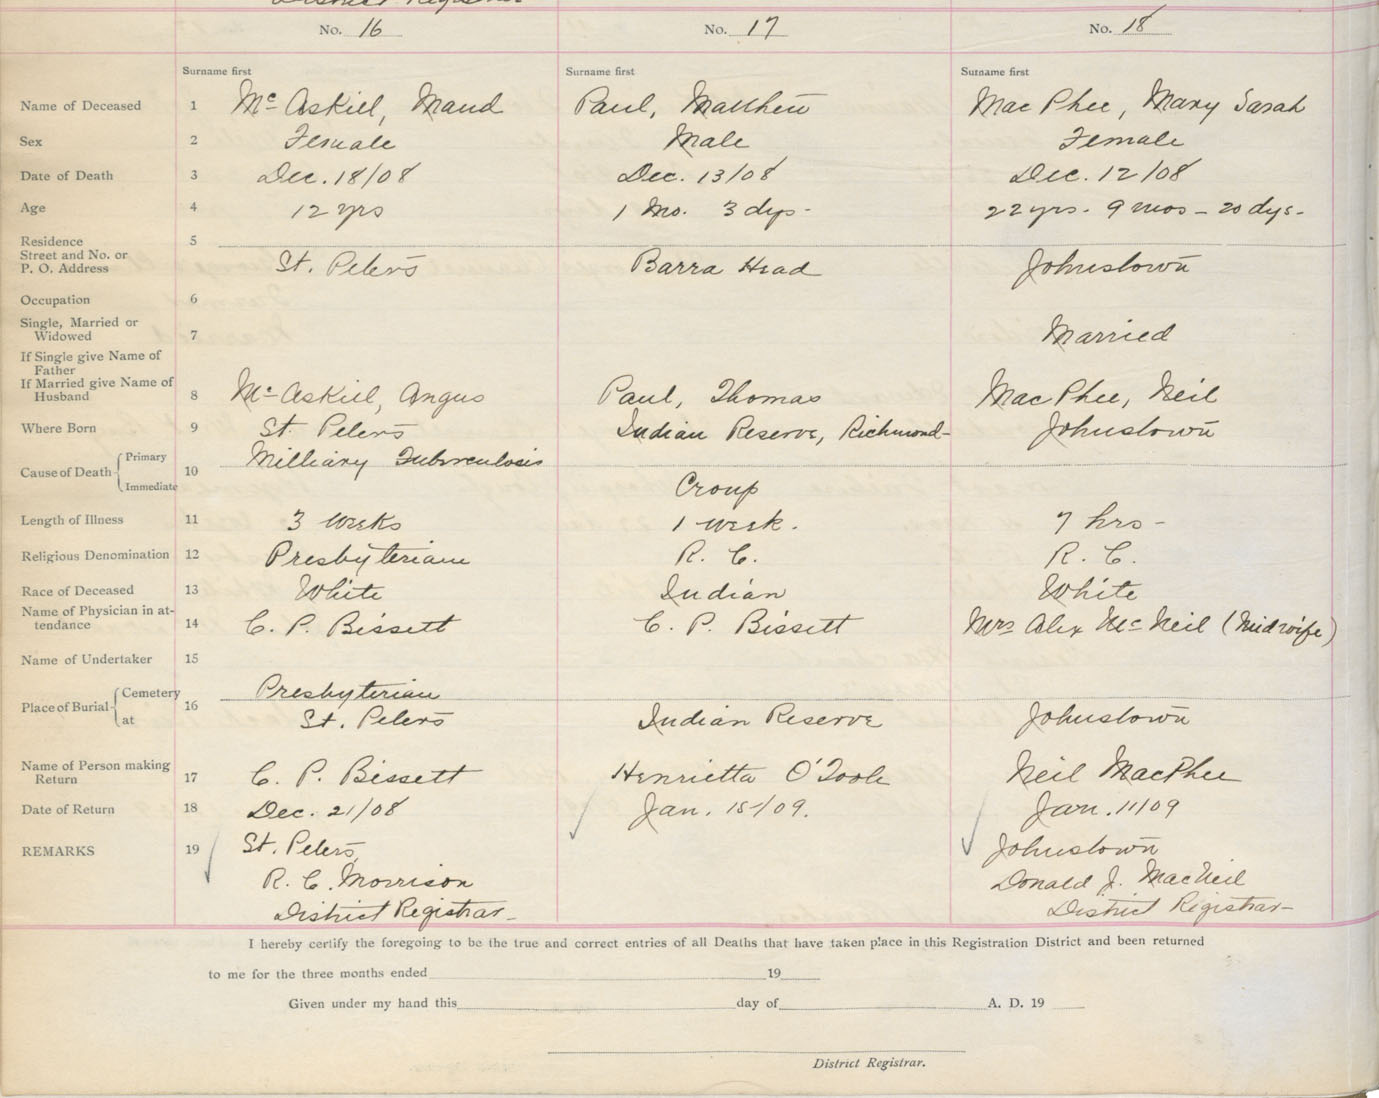 District Registrar
No. 16 No. 17 No. 18
Surname first Surname first Surname first
Name of Deceased 1 Mc Askill, Maud Paul, Matthew Mac Phee, Mary Sarah
Sex 2 Female Male Female
Date of Death 3 Dec. 18/08 Dec. 13/08 Dec. 12/08
Age 4 12 yrs 1 Mo. 3 dys- 22 yrs- 9 mos- 20 dys-
Residence 5
Street and No. or
P. O. Address St. Peters Barra Head Johnstown
Occupation 6
Single, Married or
Widowed 7 Married
If Single give Name of
Father
If Married give Name of
Husband 8 Mc Askill, Angus Paul, Thomas Mac Phee, Neil
Where Born 9 St. Peters Indian Reserve, Richmond- Johnstown
Cause of Death Primary 10 Milliary Tuberculosis
Immediate Croup
Length of Illness 11 3 weeks 1 week. 7 hrs-
Religious Denomination 12 Presbyterian R. C. R. C.
Race of Deceased 13 White Indian White
Name of Physician in at-
tendance 14 C. P. Bissett C. P. Bissett Mrs Alex Mc Neil (Midwife)
Name of Undertaker 15
Place of Burial Cemetery 16 Presbyterian
at St. Peters Indian Reserve Johnstown
Name of Person making
Return 17 C. P. Bissett Henrietta O'Toole Neil MacPhee
Date of Return 18 Dec. 21/08 Jan. 15/09. Jan. 11/09
REMARKS 19 St. Peters Johnstown
R. C. Morrison Donald J. MacNeil
District Registrar- District Registrar-
I hereby certify the foregoing to be the true and correct entries of all Deaths that have taken place in this Registration District and been returned
to me for the three months ended 19
Given under my hand this day of A. D. 19
District Registrar.